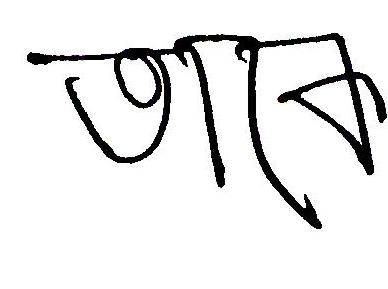 তাকে